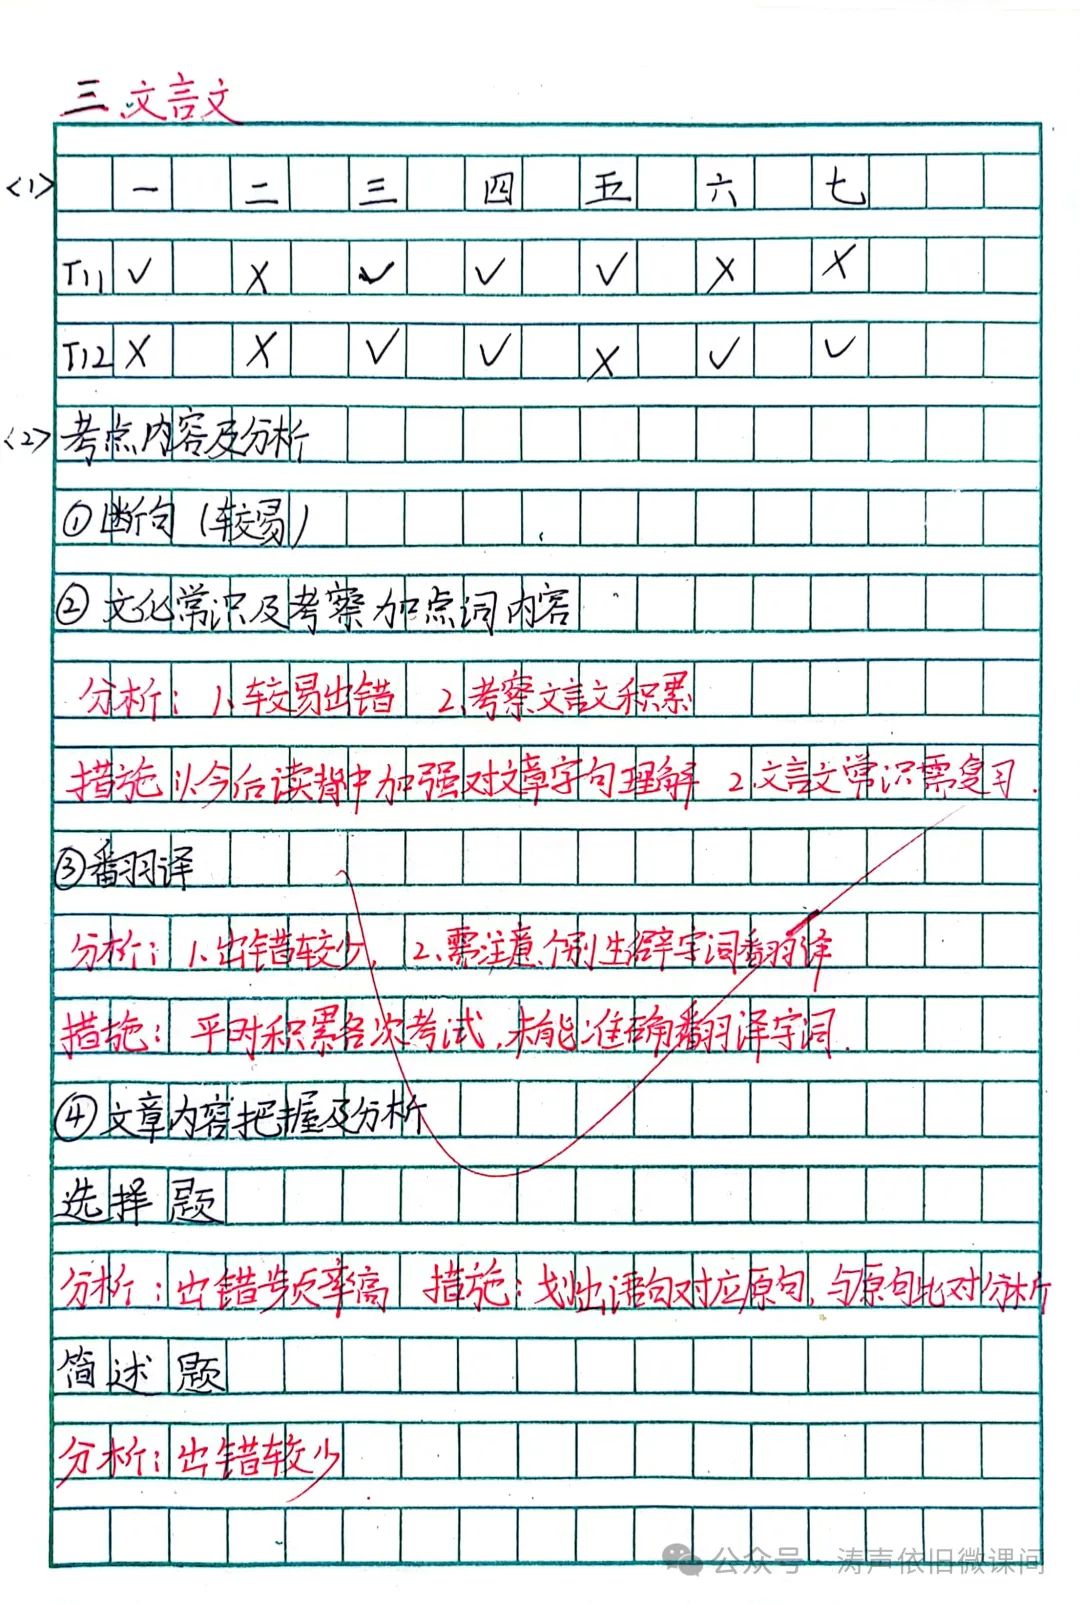 三、文言文
<1> 一 二 三 四 五 六 七
T11 ✓ X ✓ ✓ ✓ X X
T12 X X ✓ ✓ X ✓ ✓
<2> 考点内容及分析
①断句（较易）
②文化常识及考察加点词内容
分析：1、较易出错 2、考察文言文积累
措施 1、今后读背中加强对文章字句理解 2、文言文常识需复习.
③翻译
分析：1、出错较少, 2、需注意个别生僻字词翻译
措施：平时积累各次考试,未能准确翻译字词.
④文章内容把握及分析
选择题
分析：出错频率高 措施：划出语句对应原句,与原句比对分析
简述题
分析：出错较少
公众号·涛声依旧微课间